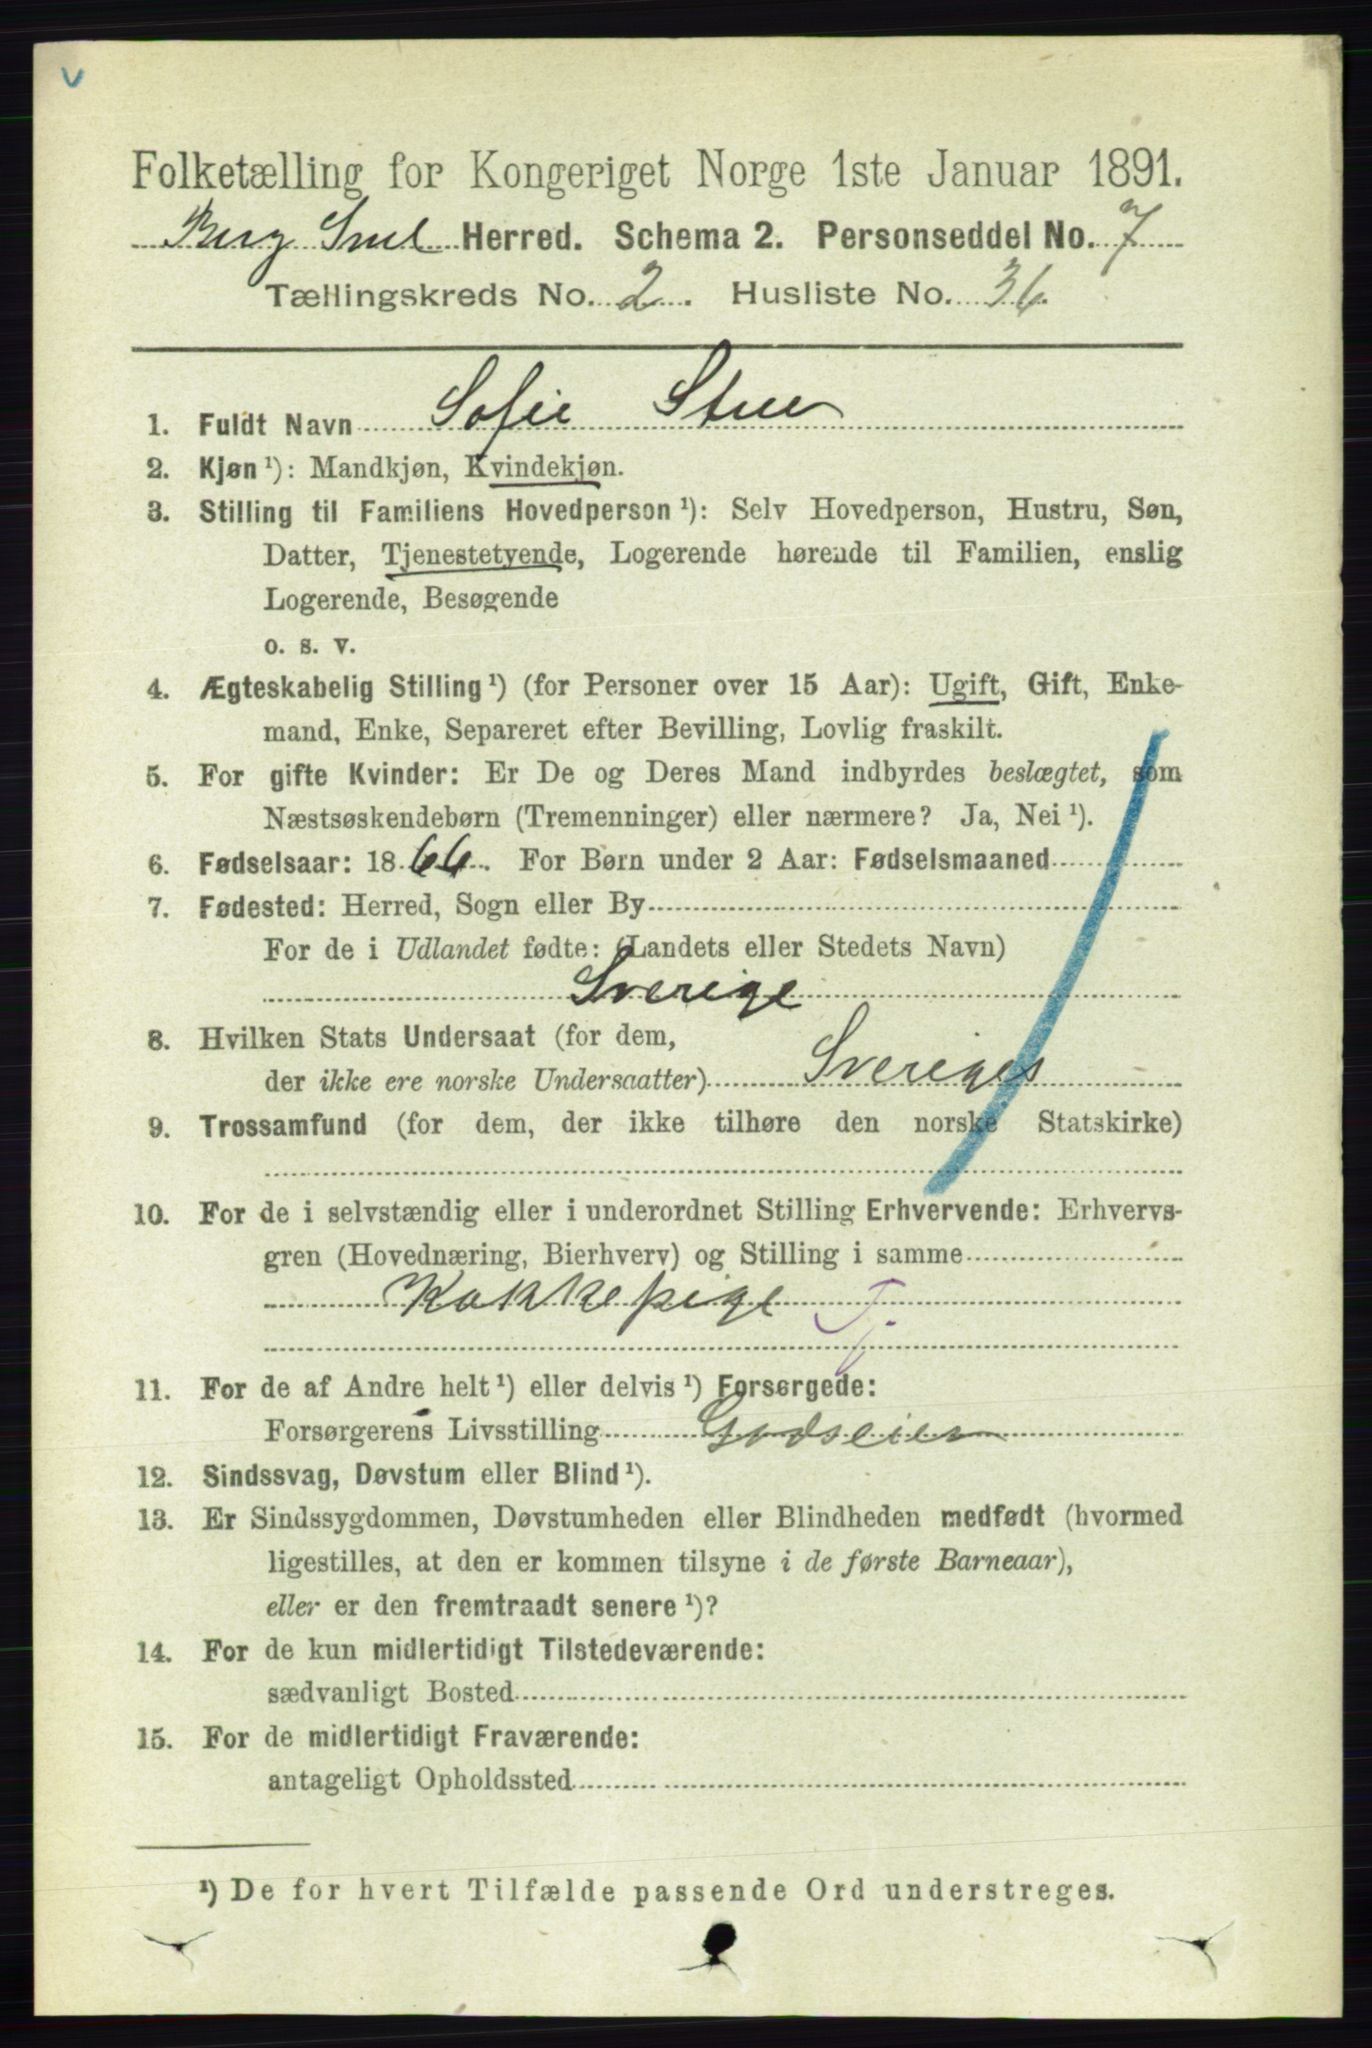 v
Folketælling for Kongeriget Norge 1ste Januar 1891.
Berg Sml Herred. Schema 2. Personseddel No. 7
Tællingskreds No. 2. Husliste No. 36.
1. Fuldt Navn Sofie Stue
2. Kjøn ¹): Mandkjøn, Kvindekjøn.
3. Stilling til Familiens Hovedperson ¹): Selv Hovedperson, Hustru, Søn,
Datter, Tjenestetyende, Logerende hørende til Familien, enslig
Logerende, Besøgende
o. s. v.
4. Ægteskabelig Stilling ¹) (for Personer over 15 Aar): Ugift, Gift, Enke-
mand, Enke, Separeret efter Bevilling, Lovlig fraskilt.
5. For gifte Kvinder: Er De og Deres Mand indbyrdes beslægtet, som
Næstsøskendebørn (Tremenninger) eller nærmere? Ja, Nei ¹).
6. Fødselsaar: 1866. For Børn under 2 Aar: Fødselsmaaned
7. Fødested: Herred, Sogn eller By
For de i Udlandet fødte: (Landets eller Stedets Navn)
Sverige
8. Hvilken Stats Undersaat (for dem,
der ikke ere norske Undersaatter) Sveriges
9. Trossamfund (for dem, der ikke tilhøre den norske Statskirke)
10. For de i selvstændig eller i underordnet Stilling Erhvervende: Erhvervs-
gren (Hovednæring, Bierhverv) og Stilling i samme
Kokkepige Tj.
11. For de af Andre helt ¹) eller delvis ¹) Forsørgede:
Forsørgerens Livsstilling Godseier
12. Sindssvag, Døvstum eller Blind ¹).
13. Er Sindssygdommen, Døvstumheden eller Blindheden medfødt (hvormed
ligestilles, at den er kommen tilsyne i de første Barneaar),
eller er den fremtraadt senere ¹)?
14. For de kun midlertidigt Tilstedeværende:
sædvanligt Bosted
15. For de midlertidigt Fraværende:
antageligt Opholdssted
¹) De for hvert Tilfælde passende Ord understreges.